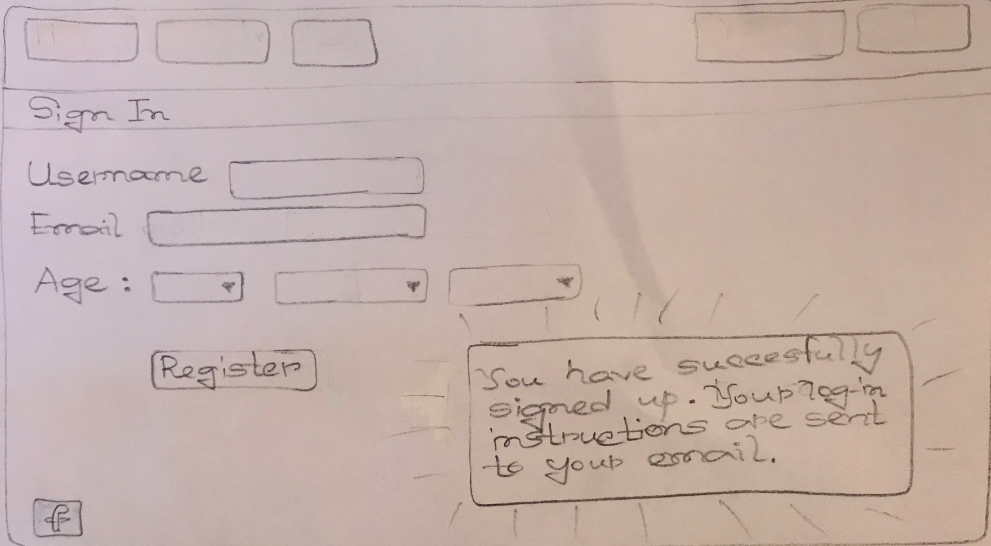 Sign In
Username
Email
Age :
Register
You have succesfully
signed up. Your log-in
instructions are sent
to your email.
f